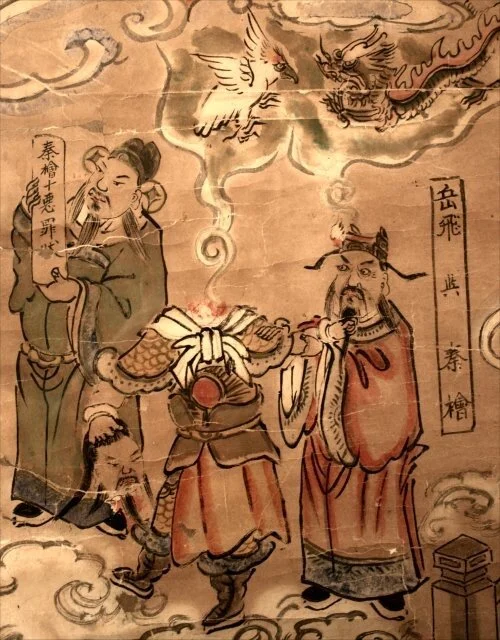 岳飛與秦檜
秦檜十惡罪狀